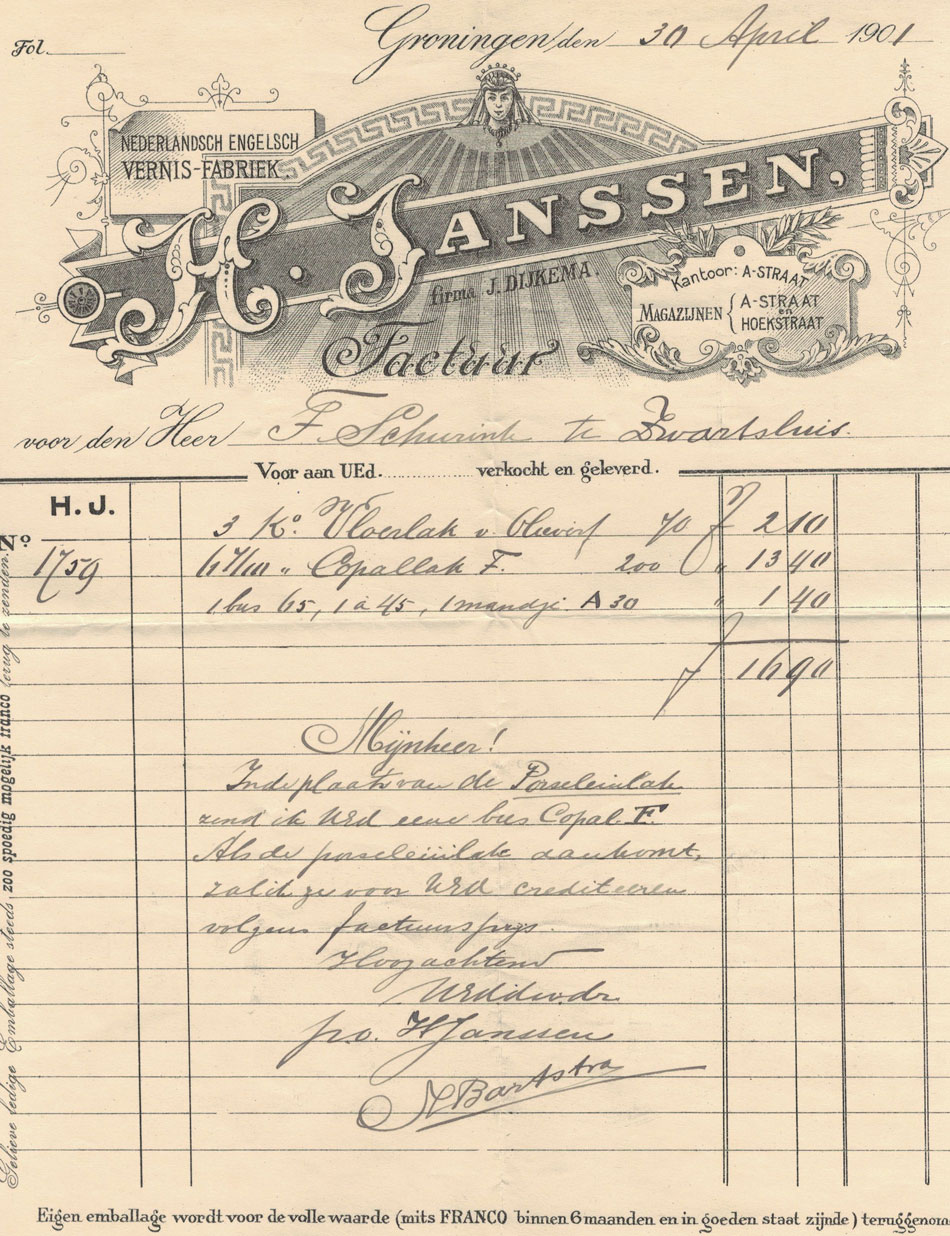 Fol.
Groningen den 30 April 1901
NEDERLANDSCH ENGELSCH
VERNIS-FABRIEK.
H. JANSSEN,
firma J. DIJKEMA.
Kantoor: A-STRAAT
MAGAZIJNEN { A-STRAAT
en
HOEKSTRAAT
Factuur
voor den Heer F. Schurink te Zwartsluis.
Voor aan UEd. verkocht en geleverd.
H. J.
No. 1759
3 Ko. Vloerlak v. 70 f 2 10
6 7/10 " Copallak F. 200 " 13 40
1 bus 65, 1 a 45, 1 mandje A 30 " 1 40
f 16 90
Mijnheer!
In de plaats van de Porseleinlak
zend ik UEd eene bus Copal F.
Als de porseleinlak aankomt,
zal ik ze voor UEd crediteeren
volgens factuursprijs.
Hoogachtend
UEddwdr
p.o. HJanssen
NBartstra
Gelieve ledige Emballage steeds zoo spoedig mogelijk franco terug te zenden.
Eigen emballage wordt voor de volle waarde (mits FRANCO binnen 6 maanden en in goeden staat zijnde) teruggenom